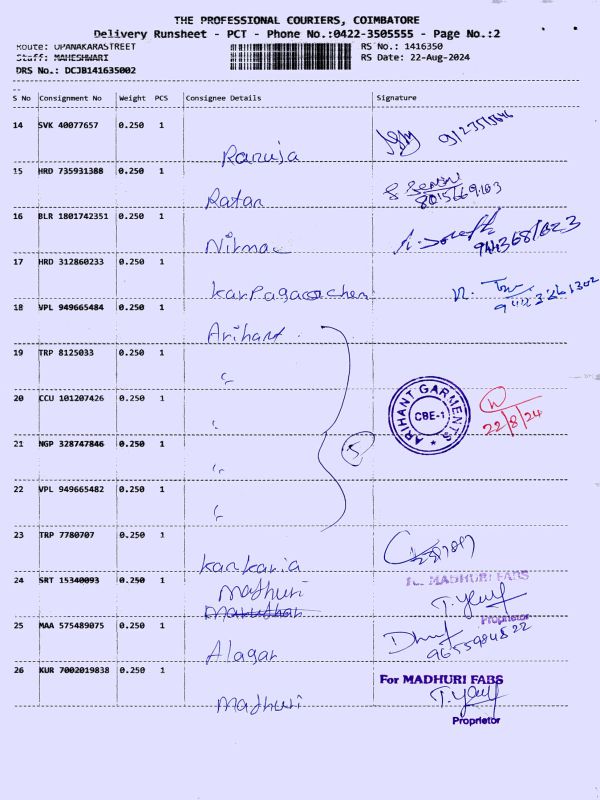 THE PROFESSIONAL COURIERS, COIMBATORE
Delivery Runsheet - PCT - Phone No.:0422-3505555 - Page No.:2
Route: UPANAKARASTREET RS No.: 1416350
Staff: MAHESHWARI RS Date: 22-Aug-2024
DRS No.: DCJB141635002
S No Consignment No Weight PCS Consignee Details Signature
14 SVK 40077657 0.250 1
Ranuja
15 HRD 735931388 0.250 1
Ratan 8015669103
16 BLR 1801742351 0.250 1
Nirmal
17 HRD 312860233 0.250 1
18 VPL 949665484 0.250 1
Arihant
19 TRP 8125033 0.250 1
20 CCU 101207426 0.250 1
ARIHANT GARMENTS
CBE-1
22/8/24
21 NGP 328747846 0.250 1
5
22 VPL 949665482 0.250 1
23 TRP 7780707 0.250 1
Kankaria
24 SRT 15340093 0.250 1
Madhuri
For MADHURI FABS
Proprietor
25 MAA 575489075 0.250 1
Alagar
26 KUR 7002019838 0.250 1
Madhuri
For MADHURI FABS
Proprietor